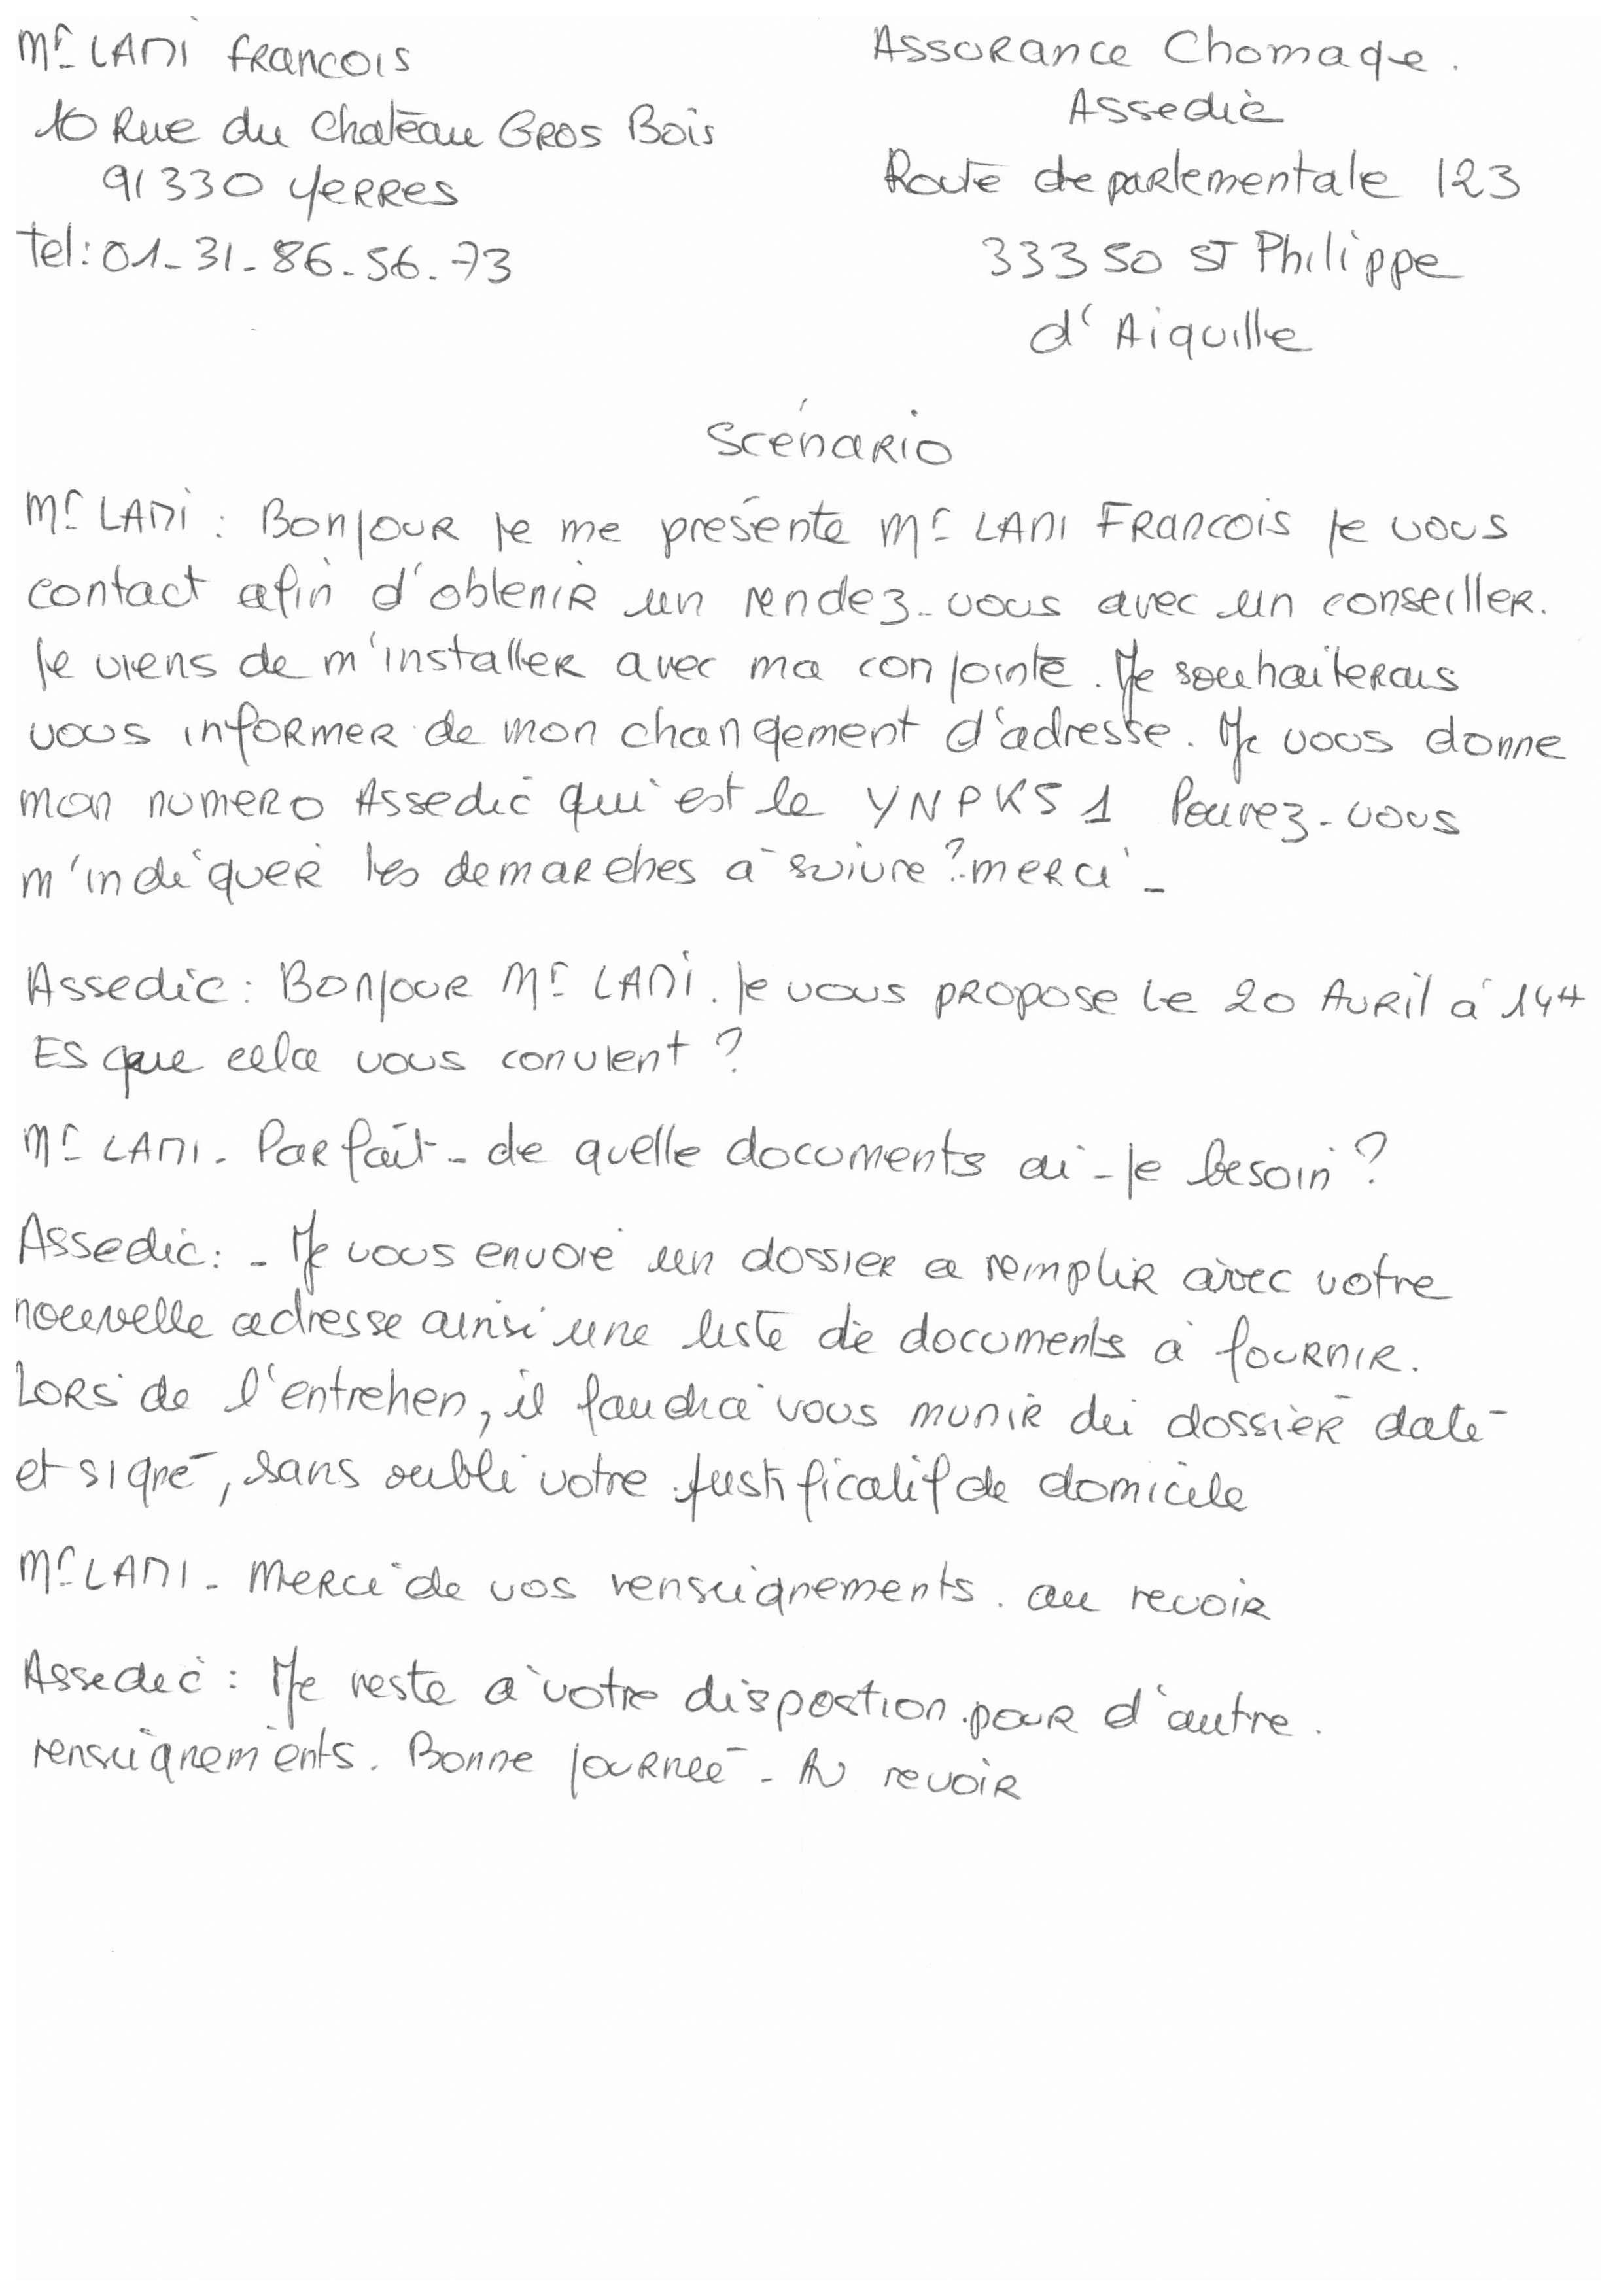 Mr LANI francois
10 Rue du Chateau Gros Bois
91330 Yerres
tel: 01-31-86-56-73
Assurance Chomage.
Assedic
Route departementale 123
33350 ST Philippe
d'Aiguille
Scénario
Mr LANI : Bonjour je me présente Mr LANI Francois je vous
contact afin d'obtenir un rendez-vous avec un conseiller.
je viens de m'installer avec ma conjointe. Je souhaiterais
vous informer de mon changement d'adresse. Je vous donne
mon numero Assedic qui est le YNPKS1 Pouvez-vous
m'indiquer les demarches à suivre ? merci -
Assedic : Bonjour Mr LANI. je vous propose le 20 Avril à 14H
Es que cela vous convient ?
Mr LANI - Parfait - de quelle documents ai-je besoin ?
Assedic : - Je vous envoie un dossier a remplir avec votre
nouvelle adresse ainsi une liste de documents à fournir.
Lors de l'entretien, il faudra vous munir du dossier daté
et signé, sans oubli votre justificatif de domicile
Mr LANI - Merci de vos renseignements. au revoir
Assedic : Je reste à votre dispostion pour d'autre.
renseignements. Bonne journée - Au revoir